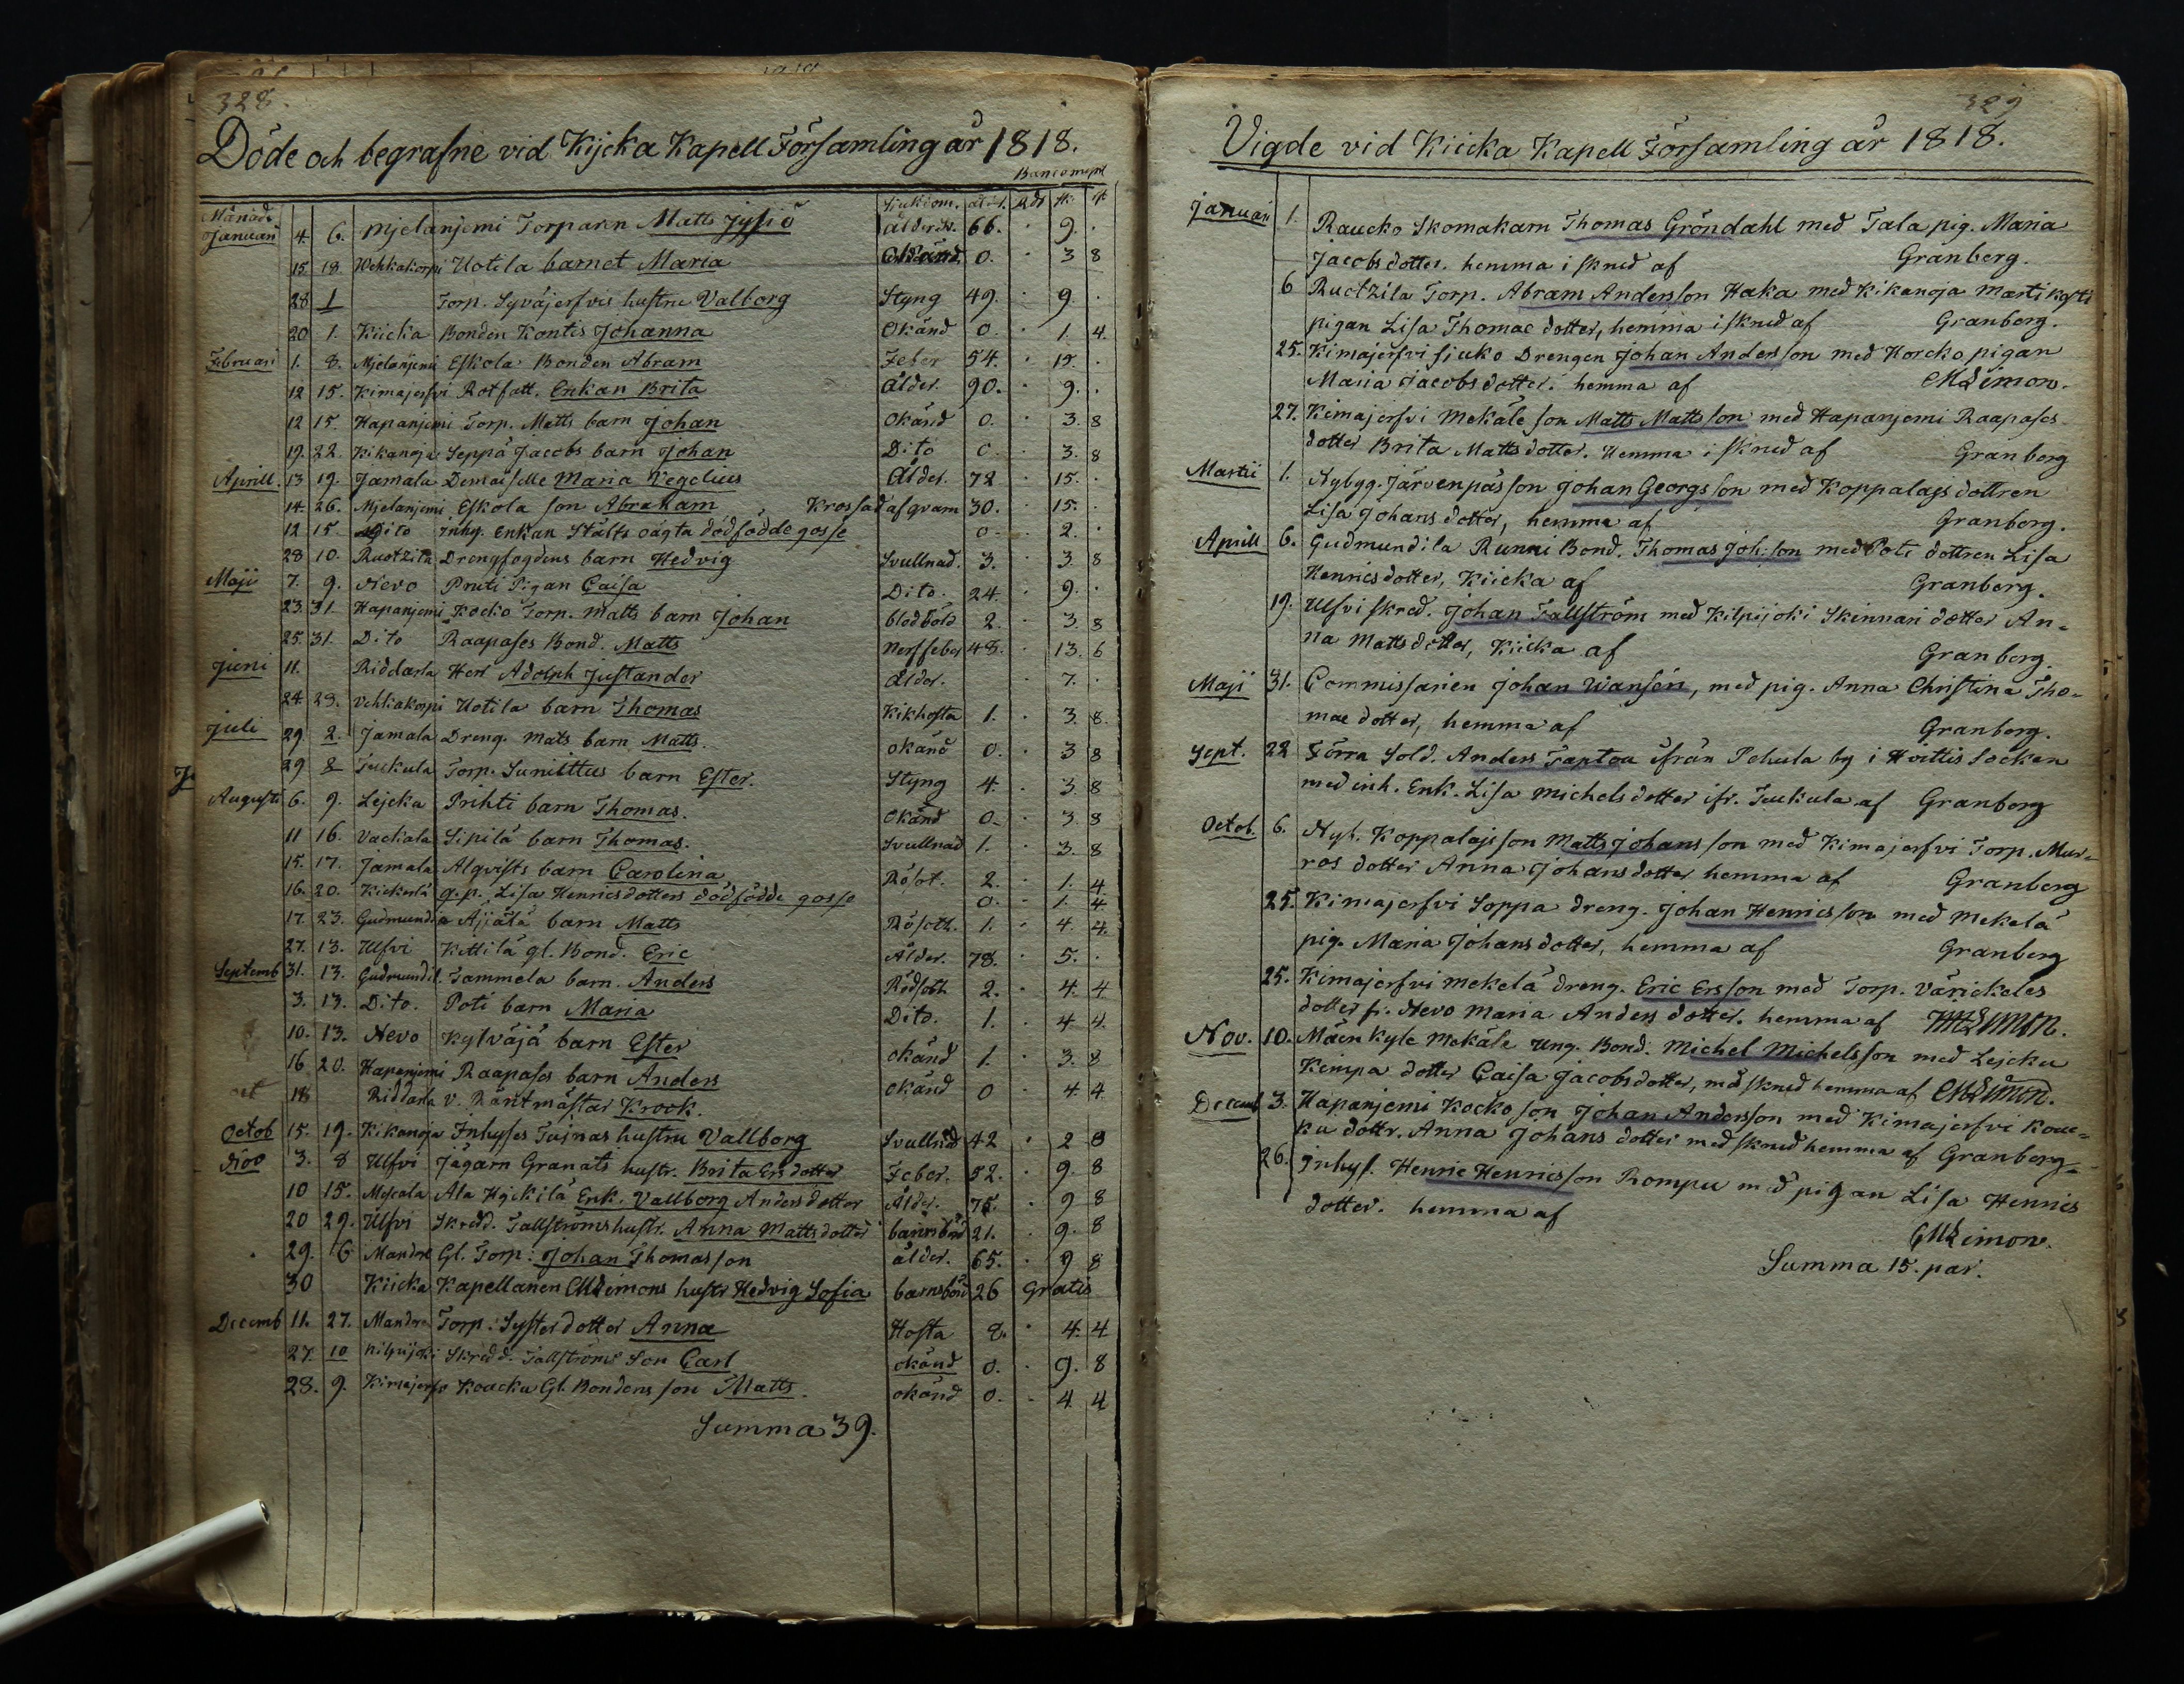 328.
Döde och begrafne vid Kijcka Kapell Församling år 1818.
Månad
Januari 4. 6. Mjelanjemi Torparn Matts Jysiö Ålderd. 66. 9.
15 18. Wehkakorpi Uotila barnet Maria Okänd. 0. 3 8
28 1 Torp. Syväjerfvis hustru Valborg Styng 49. 9.
20 1. Kiicka Bonden Kontis Johanna Okänd 0. 1. 4.
Februari 1. 8. Mjelanjemi Eskola Bonden Abram Feber 54. 15.
12 15. Kimajerfvi Rotfatt. Enkan Brita Ålder. 90. 9.
12 15. Hapanjemi Torp. Matts barn Johan Okänd 0. 3. 8
19. 22. Kikanoja Seppä Jacobs barn Johan Dito 0. 3. 8
Aprill. 13 19. Jamala Demaiselle Maria Kegelius Ålder. 72 15.
14. 26. Mjelanjemi Eskola son Abraham Krossad af qvarn 30. 15.
12 15. Dito Inhy. Enkan Stålts oägta dödfödde gosse 0. 2.
28 10. Ruotzila Drengfogdens barn Hedvig Svullnad. 3. 3. 8
Maji 7. 9. Nevo Pruti Pigan Caisa Dito. 24. 9.
23. 31. Hapanjemi Kocko Torp. Matts barn Johan 2. 3. 8
25. 31. Dito Raapases Bond. Matts Nerffeber 48. 13. 6
Juni 11. Riddarla Herr Adolph Justander Ålder. 7.
24. 29. Vehkakorpi Uotila barn Thomas Kikhosta 1. 3. 8.
Juli 29. 2. Jamala Dreng. Mats barn Matts. okänd 0. 3 8
29 8 Juckula Torp. barn Ester. Styng 4. 3. 8
Augusti 6. 9. Lejcka Prihti barn Thomas. Okänd 0. 3. 8
11 16. Vackala Sipilä barn Thomas. Svullnad 1. 3. 8
15. 17. Jamala Alqvists barn Carolina Rösot. 2. 1. 4
16. 20. q. p. Lisa Henricsdotters dödfödde gosse 0. 1. 4
17. 23. Gudmundila Äijälä barn Matts Rösoth. 1. 4. 4.
27. 13. Ulfvi Kettilä gl. Bond. Eric Ålder. 78. 5.
Septemb 31. 13. Gudmundil. Tammela barn. Anders Rödsoth 2. 4. 4
3. 13. Dito. Poti barn Maria Dito. 1. 4 4.
10. 13. Nevo Kylväjä barn Ester okänd 1. 3. 8
16 20. Hapanjemi Raapases barn Anders okänd 0 4. 4
18 Riddarla v. Räntmästar Krook.
Octob 15. 19. Kikanoja Inhyses Tajnas hustru Vallborg Svullnad 42 2 8
Nov 3. 8 Ulfvi Jägarn Granats hustr. Brita Ersdotter Feber. 52. 9. 8
10 15. Ala Hejkilä Enk. Vallborg Andersdotter Ålder. 75. 9 8
20 29. Ulfvi Skredd. Tallströms hustr. Anna Mattsdotter barnsbörd 21. 9. 8
29. 6 Mandre Gl. Torp: Johan Thomasson ålder. 65. 9 8
30 Kiicka Kapellanen Simons hustr Hedvig Sofia barnsbörd 26 Gratis
Decemb 11. 27. Mandre Torp: Syster dotter Anna Hosta 8. 4. 4
27. 10 Kilpijoki Skredd. Tallströms Son Carl okänd 0. 9. 8
28. 9. Kimajerfvi Koacku Gl. Bondens son Matts. okänd 0. 4 4
Summa 39.
329
Vigde vid Kiicka Kapell Församling år 1818.
Januari 1. Raucko Skomakarn Thomas Gröndahl med Tala pig. Maria
Jacobs dotter. hemma i skrud af Granberg.
6 Ruotzila Torp. Abram Andersson Haka med Kikanoja
pigan Lisa Thomae dotter, hemma i skrud af Granberg.
25. Kimajerfvi sjuko Drengen Johan Andersson med Horcko pigan
Maria Jacobs dotter. hemma af Simon.
27. Kimajerfvi Mekäle son Matts Mattsson med Hapanjemi Raapases
dotter Brita Matts dotter. Hemma i skrud af Granberg
Martii 1. Nybyg. Järvenpäs son Johan Georgsson med Koppalajs dottren
Lisa Johans dotter, hemma af Granberg.
Aprill 6. Gudmundila Runni Bond. Thomas Joh:son med Poti dottren Lisa
Henrics dotter, Kiicka af Granberg.
19. Ulfvi skred. Johan Tallström med Kilpijoki Skinnari dotter An-
na Matts dotter, Kiicka af Granberg.
Maji 31. Commissarien Johan Wansén, med pig. Anna Christina Tho-
mae dotter, hemma af Granberg.
Sept. 22 Förra Sold. Anders Taptoa ifrån Pehula by i Hvittis Socken
med inh. Enk. Lisa Michels dotter ifr. Juckula af Granberg
Octob. 6. Nyb. Koppalajs son Matts Johansson med Kimajerfvi Torp. Mur-
ros dotter Anna Johans dotter hemma af Granberg
25. Kimajerfvi Soppa dreng. Johan Henricsson med Mekelä
pig. Maria Johans dotter, hemma af Granberg
25. Kimajerfvi Mekelä dreng. Eric Ersson med Torp. Värickeles
dotter fr. Nevo Maria Anders dotter. hemma af Simon.
Nov. 10. Mäen kyle Mekäle Ung. Bond. Michel Michelsson med Lejcku
Kempa dotter Caisa Jacobsdotter, med skrud hemma af Simon.
Decemb 3. Hapanjemi Kocko son Johan Andersson med Kimajerfvi Koue-
ku dottr. Anna Johans dotter med skrud hemma af Granberg.
26. Inhys. Henric Henricsson Rompu med pigan Lisa Henrics
dotter. hemma af
Simon.
Summa 15. par.